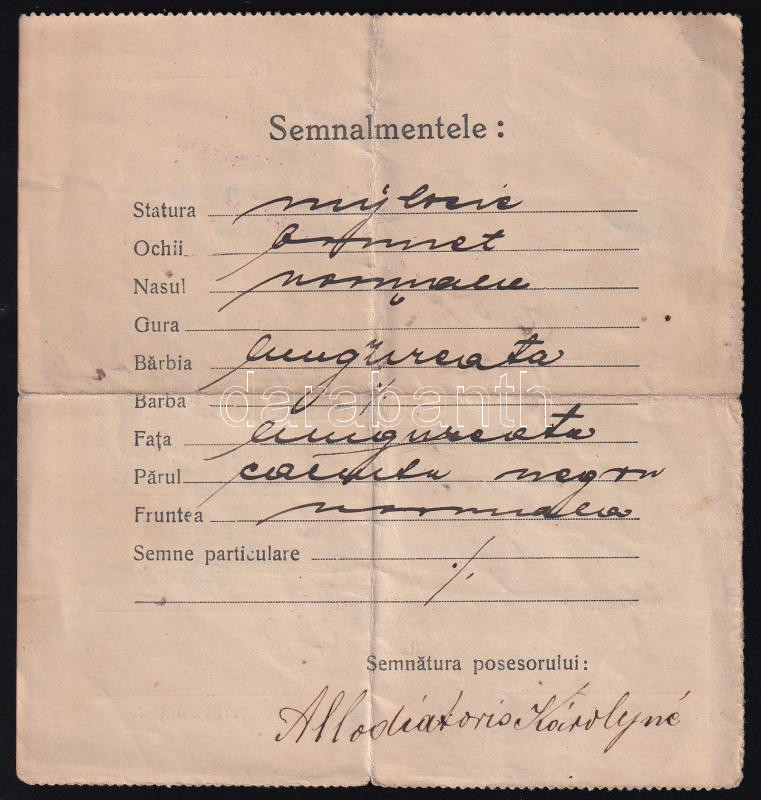 Semnalmentele :
Statura mijlocie
Ochii brunet
Nasul normala
Gura
Bărbia lungureata
Barba ·/.
Fața lungureata
Părul negru
Fruntea normala
Semne particulare
·/.
Semnătura posesorului :
Allodiatoris Károlyné
darabanth